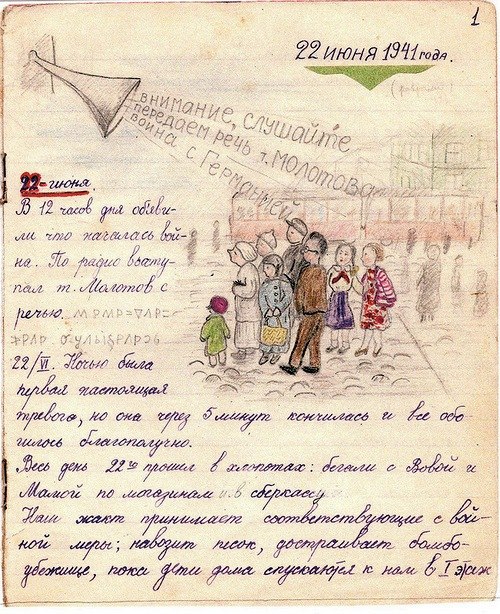 1
22 июня 1941 года.
внимание, слушайте
передаем речь т. Молотова
война с Германией
22-июня
В 12 часов дня обьяви-
ли что началась вой-
на. По радио высту-
пал т. Молотов с
речью.
22/VI. Ночью была
первая настоящая
тревога, но она через 5 минут кончилась и все обо-
шлось благополучно.
Весь день 22го прошел в хлопотах: бегали с Вовой и
Мамой по магазинам и в сберкассу
Наш жакт принимает соответствующие с вой-
ной меры; навозит песок, достраивает бомбо-
убежище, пока дети дома спускаются к нам в I этаж